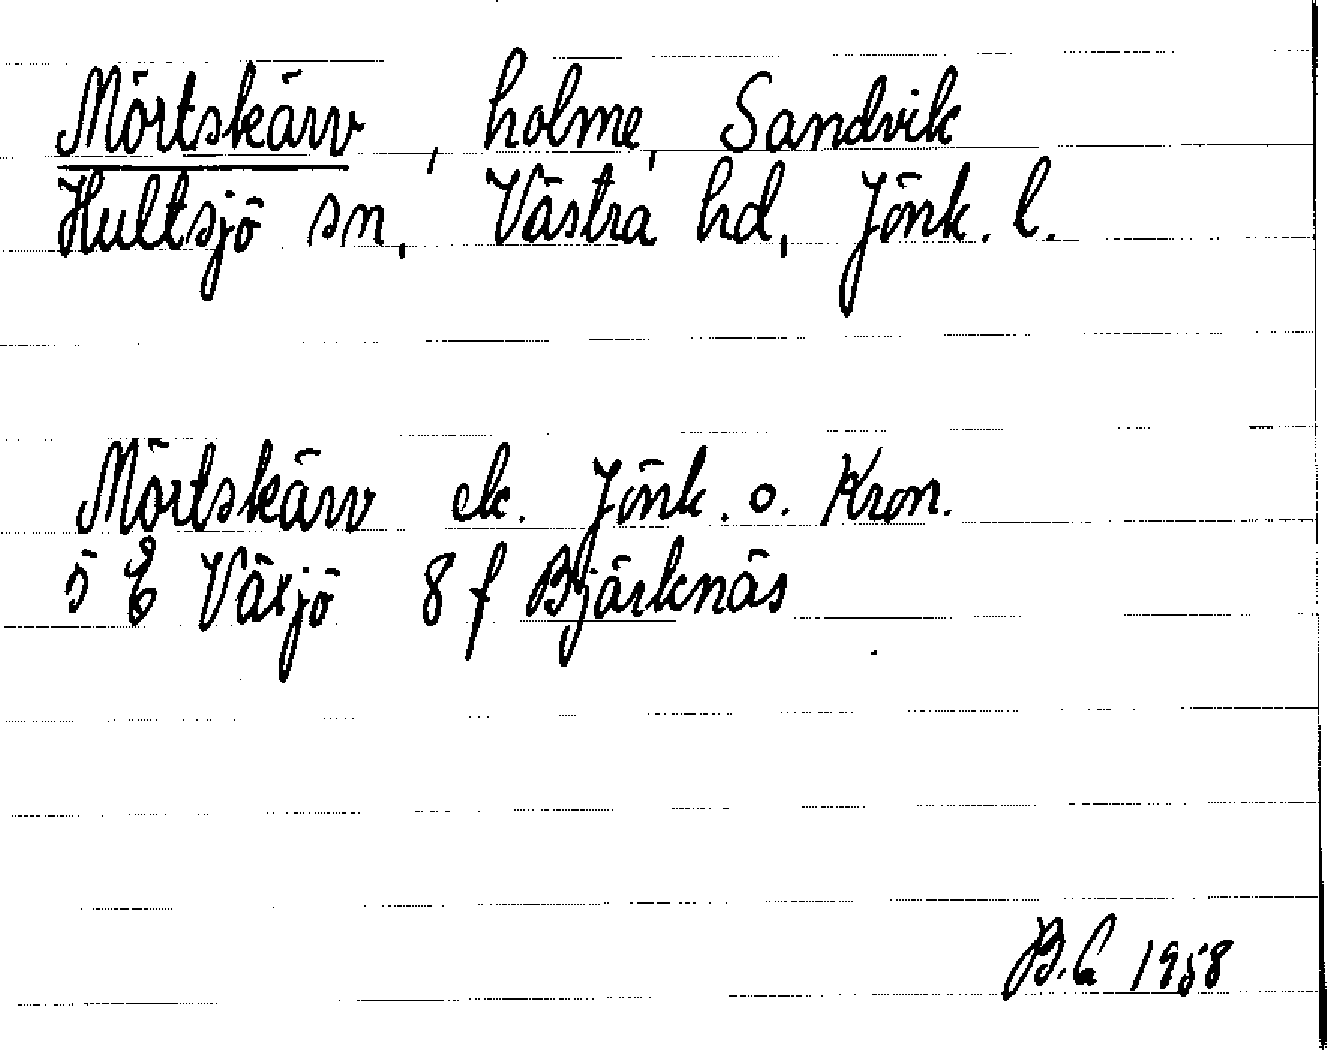 Mörtskärv, holme, Sandvik
Hultsjö sn, Västra hd, Jönk. l.
Mörtskärv ek. Jönk. o. Kron.
5 E Växjö 8 f Bjärknäs
B.L 1958